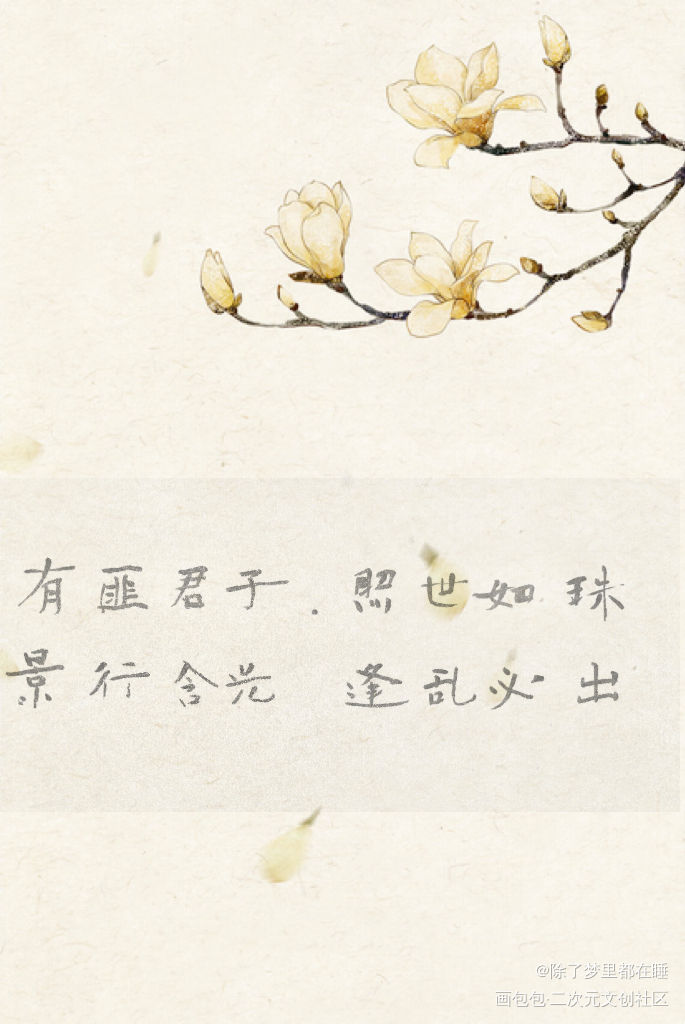 有匪君子.照世如珠
景行含光 逢乱必出
@除了梦里都在睡
画包包·二次元文创社区